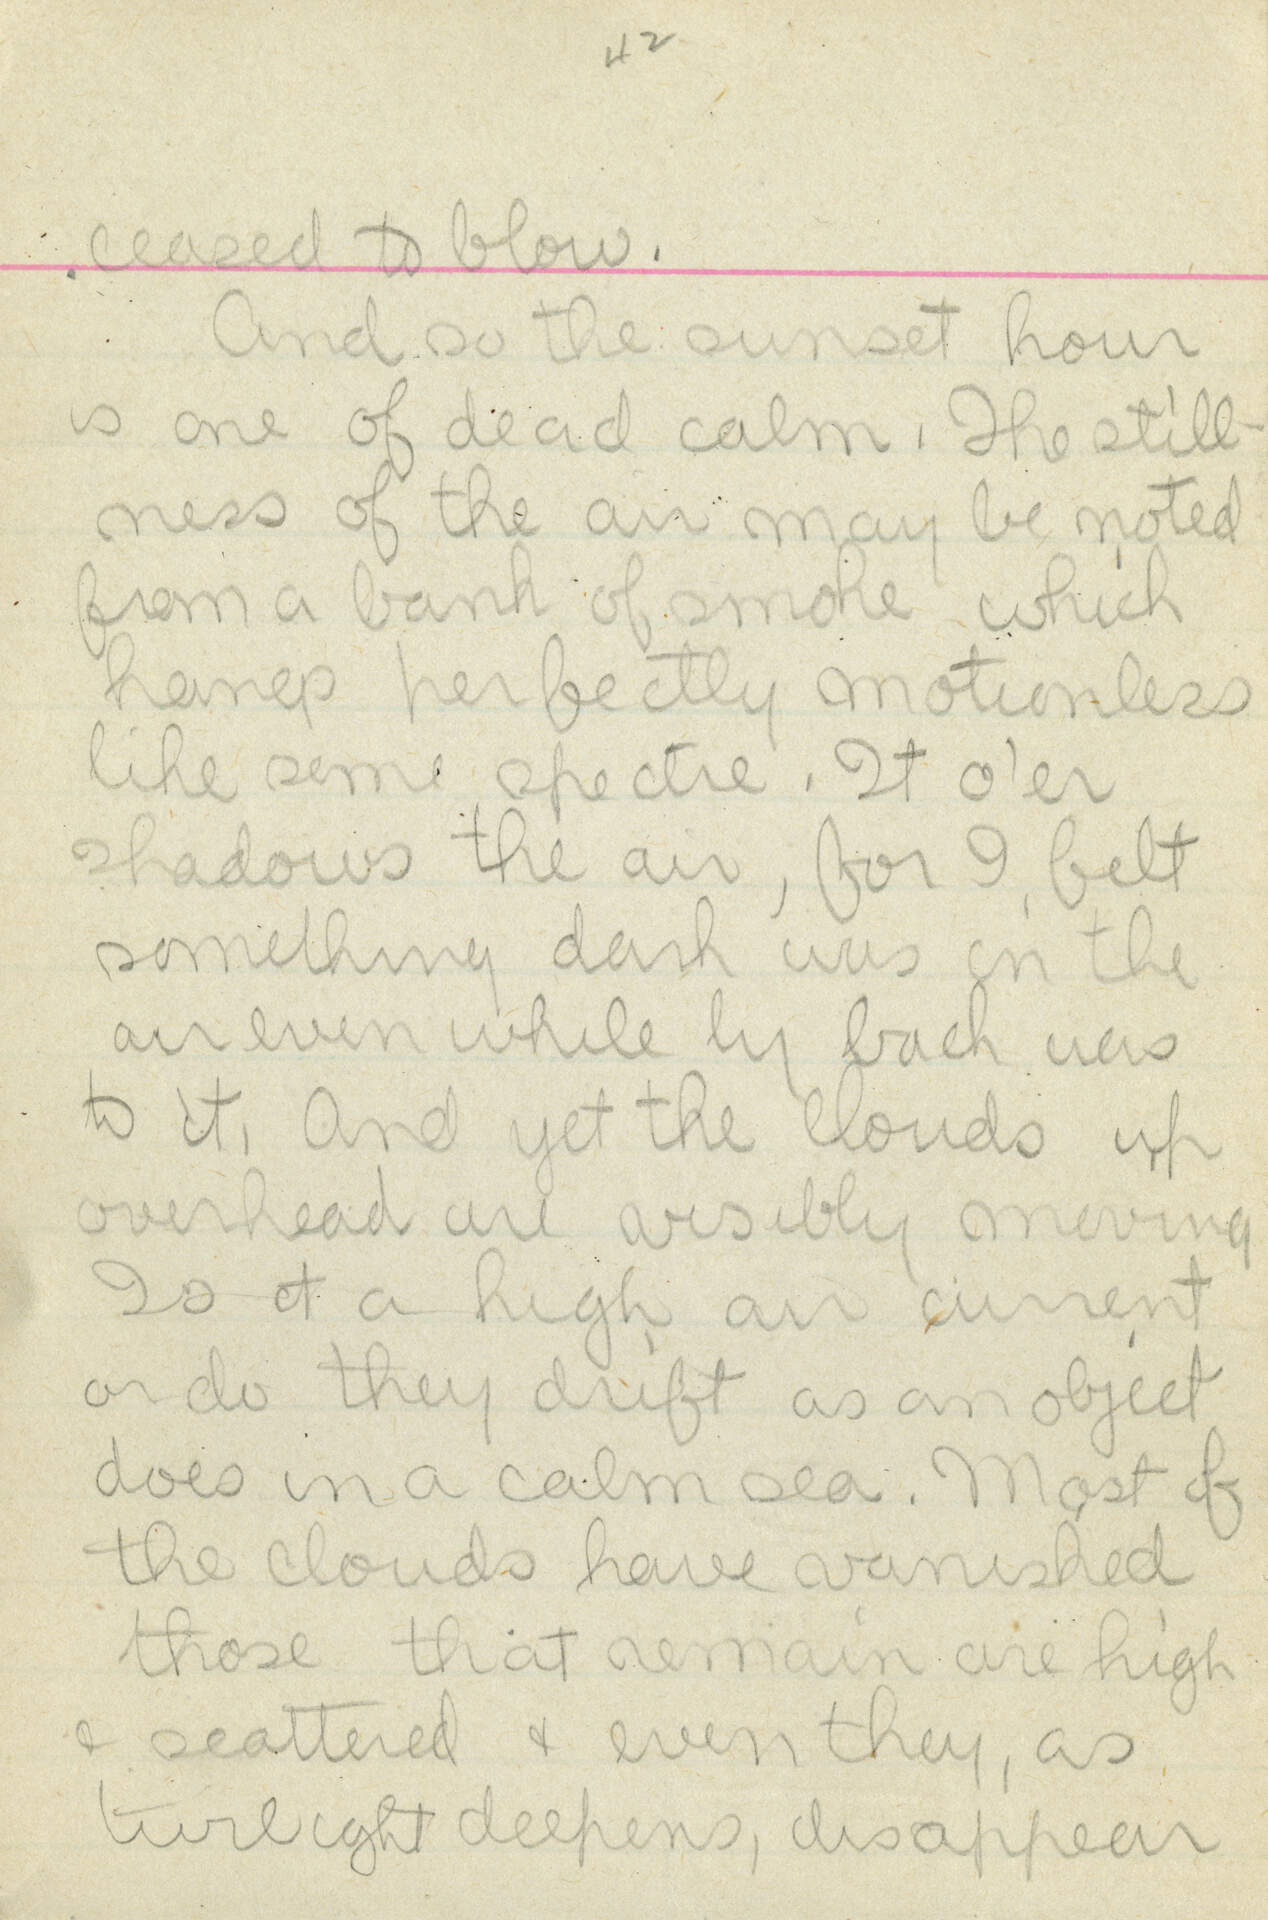 42
ceased to blow.
And so the sunset hour
is one of dead calm. The still-
ness of the air may be noted
from a bank of smoke which
hangs perfectly motionless
like some spectre. It o'er
shadows the air, for I felt
something dark was in the
air even while by back was
to it. And yet the clouds up
overhead are visibly moving
Is it a high air current
or do they drift as an object
does in a calm sea. Most of
the clouds have vanished
those that remain are high
& scattered & even they, as
twilight deepens, disappear